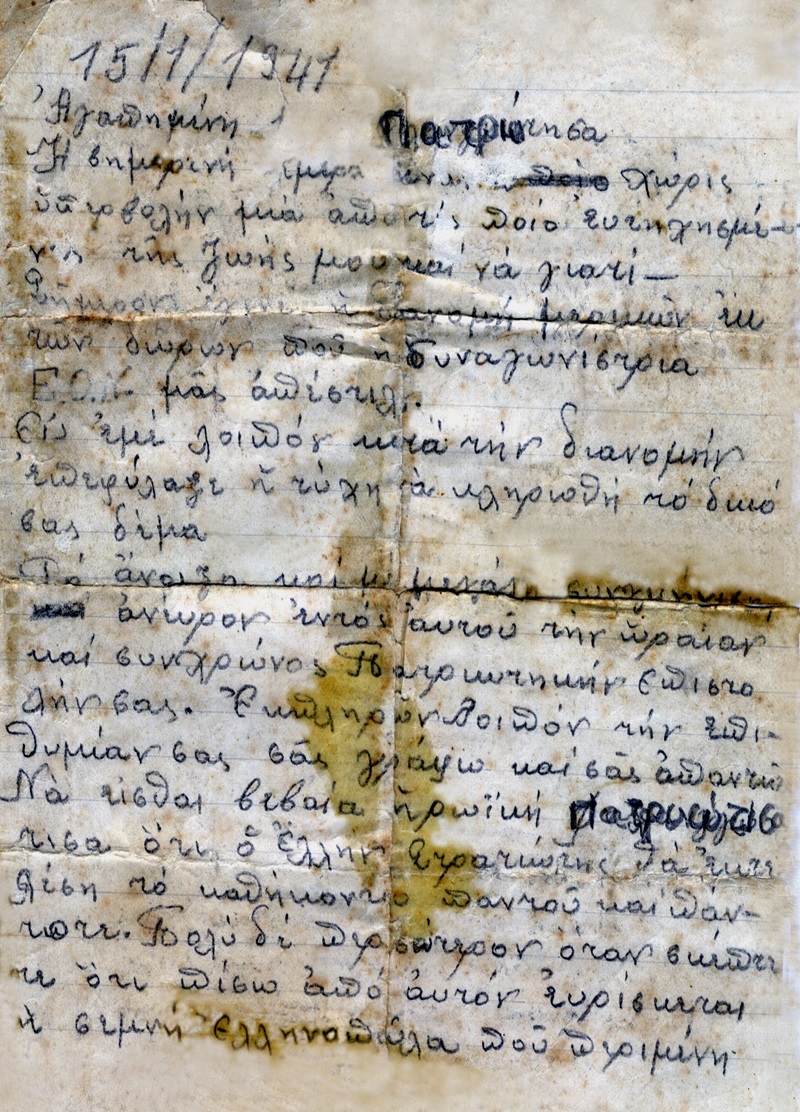 15/1/1941
Ἀγαπημένη Πατριώτησα
Ἡ σημερινή ἡμερα εἶναι χώρις
ὑπερβολήν μιά ἀπό τίς ποιό ἐυτηχησμέ-
νες τῆς ζωῆς μου καί νά γιατί —
Σήμερον ἔγινε ἡ διανομή μερικῶν ἐκ
τῶν δώρων ποῦ ἡ Συναγωνίστρια
Ε.Ο.Ν. μᾶς ἀπέστιλε.
Εἰς ἐμέ λοιπόν κατά τήν διανομήν
ἐπεφύλαξε ἡ τύχη νὰ κληρωθῆ τό δικό
σας δέμα
Τό ἄνοιξα καί μέ μεγάλη συγκίνηση
ἀνεύρον ἐντός ἀυτοῦ τήν ὡραίαν
καί συνχρώνος Πατριωτηκήν ἐπιστο
λήν σας. Ἐκπληρῶν λοιπόν τήν ἐπι-
θυμίαν σας σᾶς γράψω καί σᾶς ἀπαντῶ
Νὰ εἶσθαι βεβαία ἡρωϊκή Πατριώτισ
τισα ὅτι ὁ Ἕλλην Στρατιώτης θὰ ἐκτε
λέση τό καθήκον το παντοῦ καί πάν-
τοτε. Πολύ δέ περσώτερον ὅταν σκέπτε
τε ὅτι πίσω ἀπό ἀυτόν ἐυρίσκεται
ἡ σεμνή Ἑλληνοπούλα ποῦ περιμένη